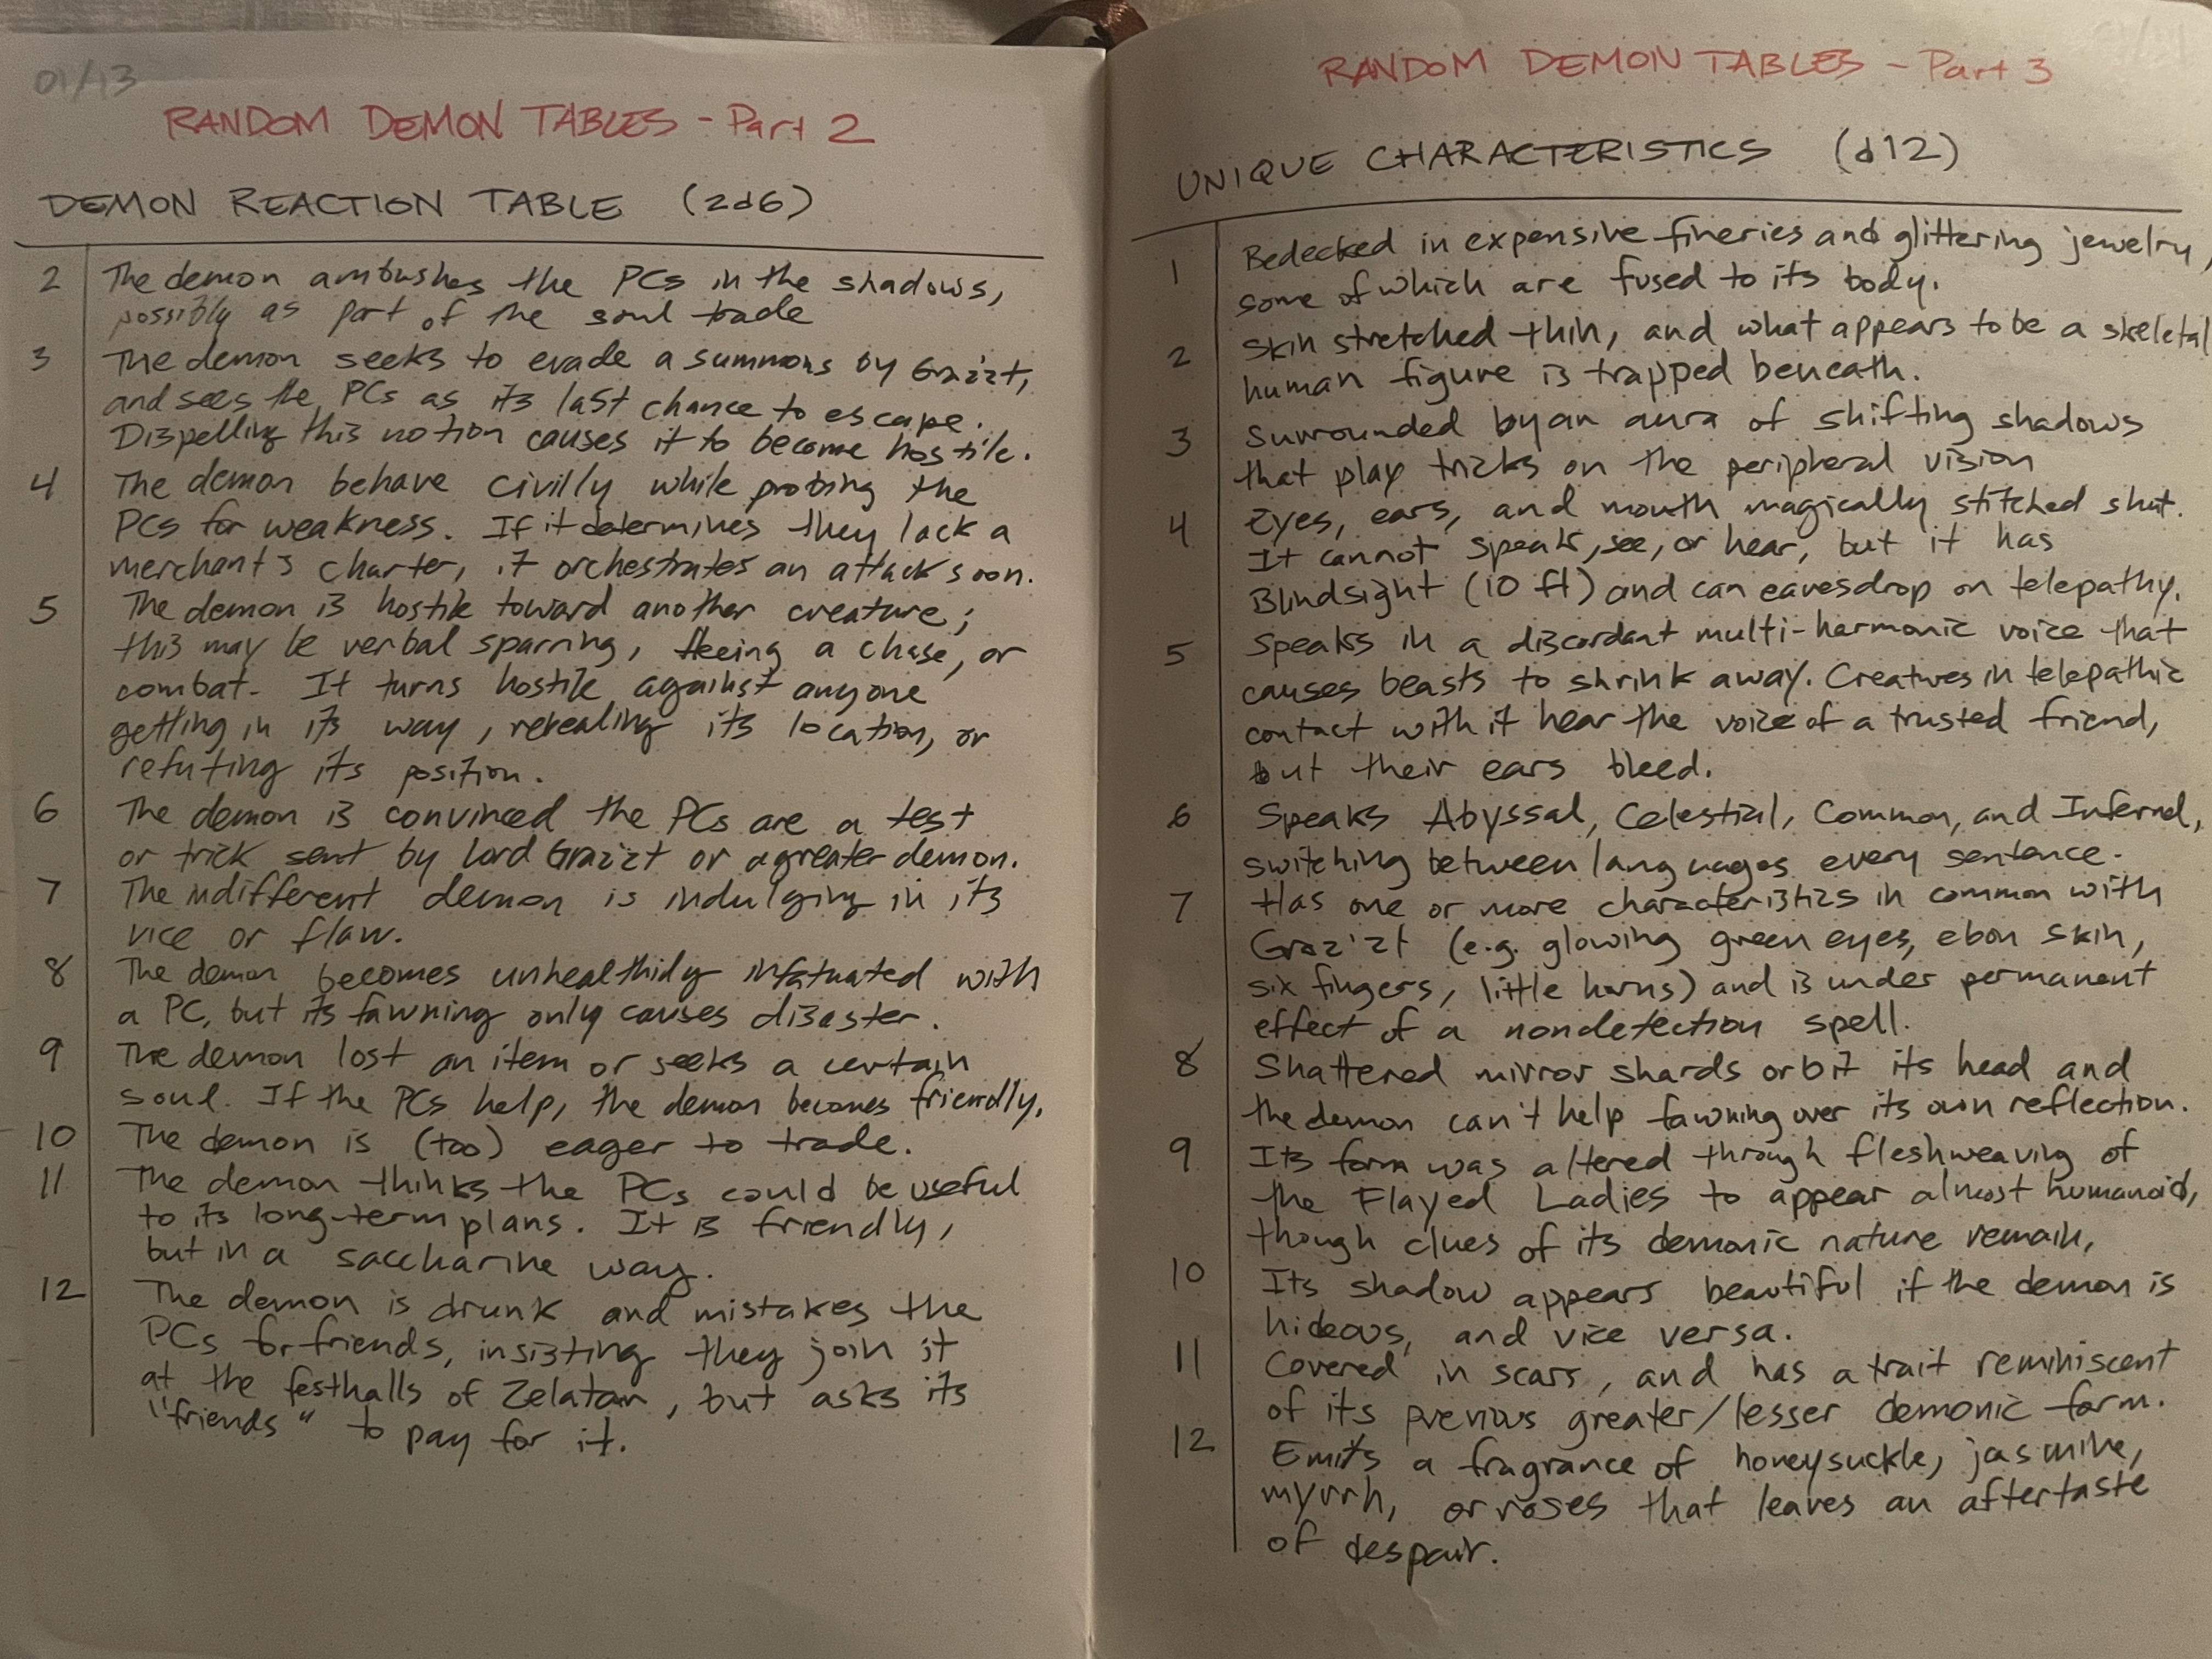 01/13
RANDOM DEMON TABLES - Part 2
DEMON REACTION TABLE (2d6)
2 The demon ambushes the PCs in the shadows,
possibly as part of the soul trade
3 The demon seeks to evade a summons by Graz'zt,
and sees the PCs as its last chance to escape.
Dispelling this notion causes it to become hostile.
4 The demon behave civilly while probing the
PCs for weakness. If it determines they lack a
merchant's charter, it orchestrates an attack soon.
5 The demon is hostile toward another creature;
this may be verbal sparring, fleeing a chase, or
combat. It turns hostile against anyone
getting in its way, revealing its location, or
refuting its position.
6 The demon is convinced the PCs are a test
or trick sent by Lord Graz'zt or a greater demon.
7 The indifferent demon is indulging in its
vice or flaw.
8 The demon becomes unhealthily infatuated with
a PC, but its fawning only causes disaster.
9 The demon lost an item or seeks a certain
soul. If the PCs help, the demon becomes friendly.
10 The demon is (too) eager to trade.
11 The demon thinks the PCs could be useful
to its long-term plans. It is friendly,
but in a saccharine way.
12 The demon is drunk and mistakes the
PCs for friends, insisting they join it
at the festhalls of Zelatar, but asks its
"friends" to pay for it.
RANDOM DEMON TABLES - Part 3
UNIQUE CHARACTERISTICS (d12)
1 Bedecked in expensive fineries and glittering jewelry,
some of which are fused to its body.
2 Skin stretched thin, and what appears to be a skeletal
human figure is trapped beneath.
3 Surrounded by an aura of shifting shadows
that play tricks on the peripheral vision
4 Eyes, ears, and mouth magically stitched shut.
It cannot speak, see, or hear, but it has
Blindsight (10 ft) and can eavesdrop on telepathy.
5 Speaks in a discordant multi-harmonic voice that
causes beasts to shrink away. Creatures in telepathic
contact with it hear the voice of a trusted friend,
but their ears bleed.
6 Speaks Abyssal, Celestial, Common, and Infernal,
switching between languages every sentence.
7 Has one or more characteristics in common with
Graz'zt (e.g. glowing green eyes, ebon skin,
six fingers, little horns) and is under permanent
effect of a nondetection spell.
8 Shattered mirror shards orbit its head and
the demon can't help fawning over its own reflection.
9 Its form was altered through fleshweaving of
the Flayed Ladies to appear almost humanoid,
though clues of its demonic nature remain,
10 Its shadow appears beautiful if the demon is
hideous, and vice versa.
11 Covered in scars, and has a trait reminiscent
of its previous greater/lesser demonic form.
12 Emits a fragrance of honeysuckle, jasmine,
myrrh, or roses that leaves an aftertaste
of despair.